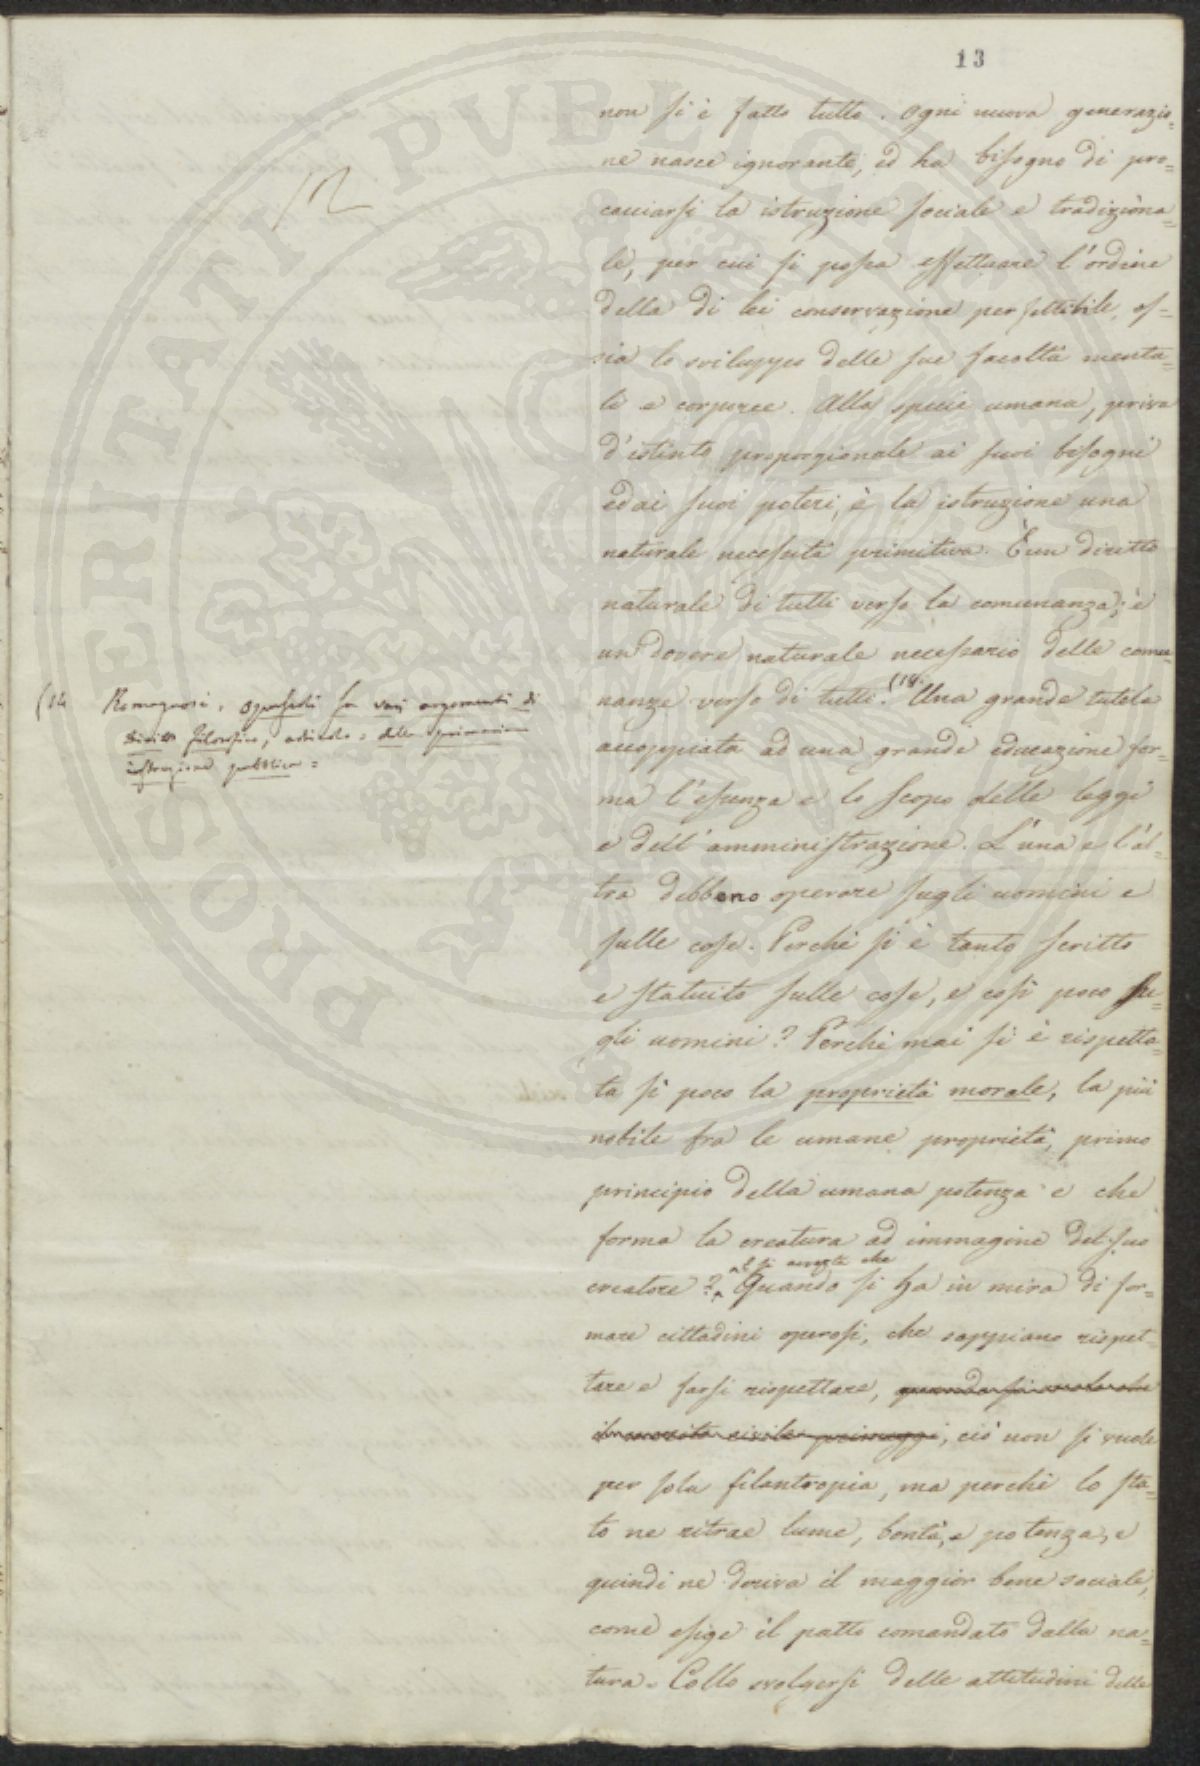 13
12
non si è fatto tutto. Ogni nuova generazio=
ne nasce ignorante, ed ha bisogno di pro=
cacciarsi la istruzione sociale e tradiziona=
le, per cui si possa effettuare l'ordine
della di lei conservazione perfettibile, os=
sia lo sviluppo delle sue facoltà menta=
li e corporee. Alla specie umana, priva
d'istinto proporzionale ai suoi bisogni
ed ai suoi poteri, è la istruzione una
naturale necessità primitiva. È un diritto
naturale di tutti verso la comunanza; è
un dovere naturale necessario delle comu=
nanze verso di tutti. (14. Una grande tutela
accoppiata ad una grande educazione for=
ma l'essenza e lo scopo delle leggi
e dell'amministrazione. L'una e l'al=
tra debbono operare sugli uomini e
sulle cose. Perchè si è tanto scritto
e statuito sulle cose, e così poco su=
gli uomini? Perchè mai si è rispetta=
ta sì poco la proprietà morale, la più
nobile fra le umane proprietà, primo
principio della umana potenza e che
forma la creatura ad immagine del suo
creatore? Quando si ha in mira di for=
mare cittadini operosi, che sappiano rispet=
tare e farsi rispettare, quando si vuole che
il merito civile primeggi, ciò non si vuole
per sola filantropia, ma perchè lo sta=
to ne ritrae lume, bontà, e potenza, e
quindi ne deriva il maggior bene sociale,
come esige il patto comandato dalla na=
tura. Collo svolgersi delle attitudini delle
(14 Romagnosi, opuscoli su varj argomenti di
diritto filosofico, articolo = della primaria
istruzione pubblica =
PROSPERITATI PVBLICAE